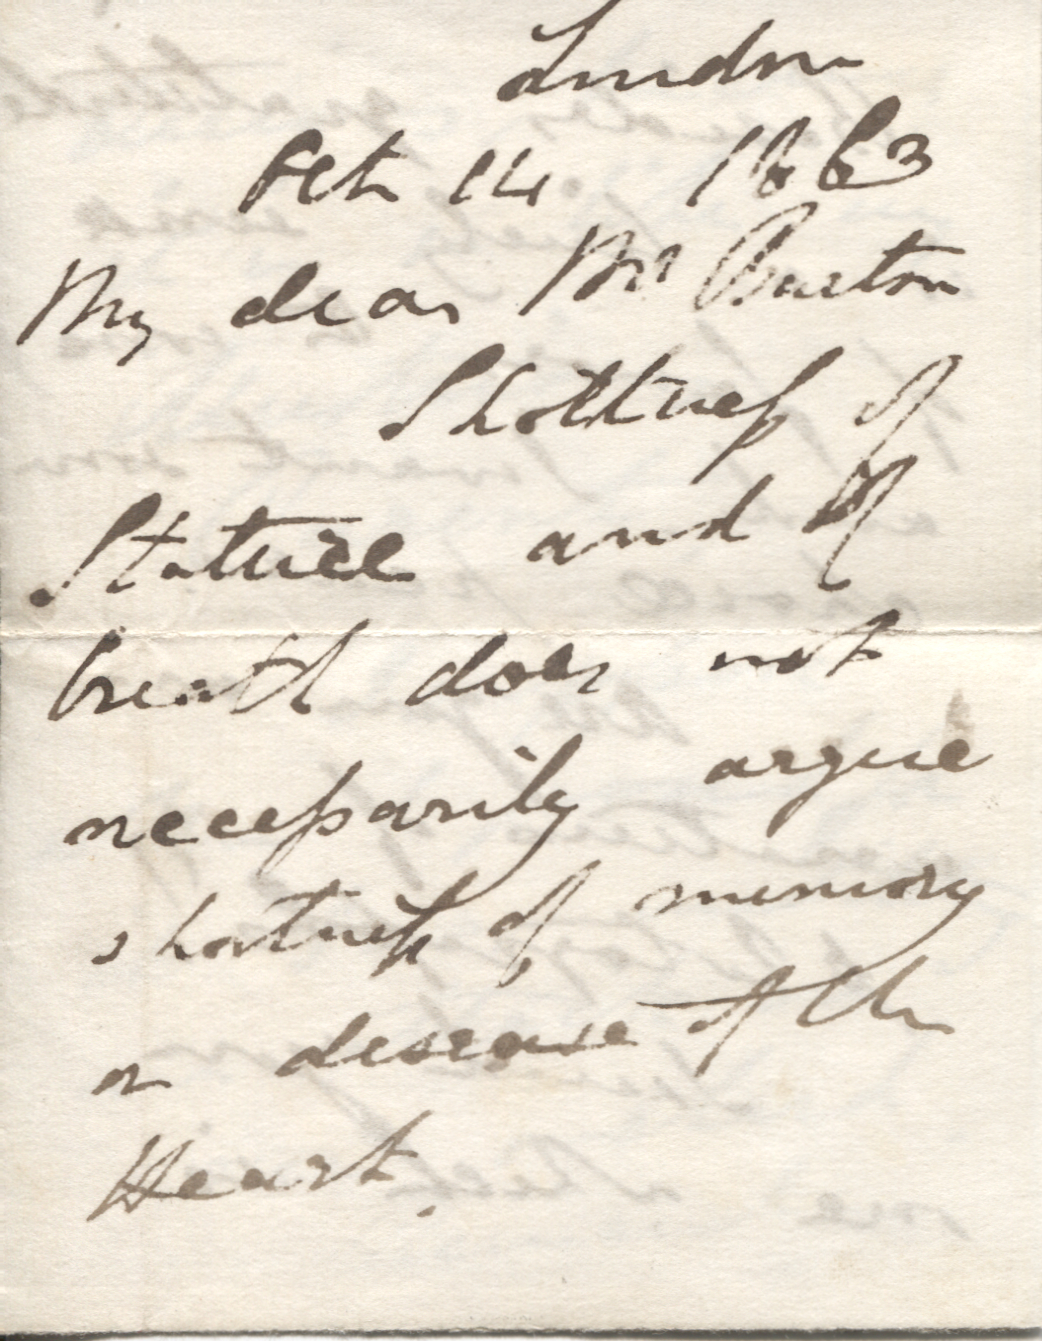 London
Oct 14 1863
My dear Mr Burton
Shortness of
Stature and of
breath does not
necessarily argue
shortness of memory
or disease of the
Heart.